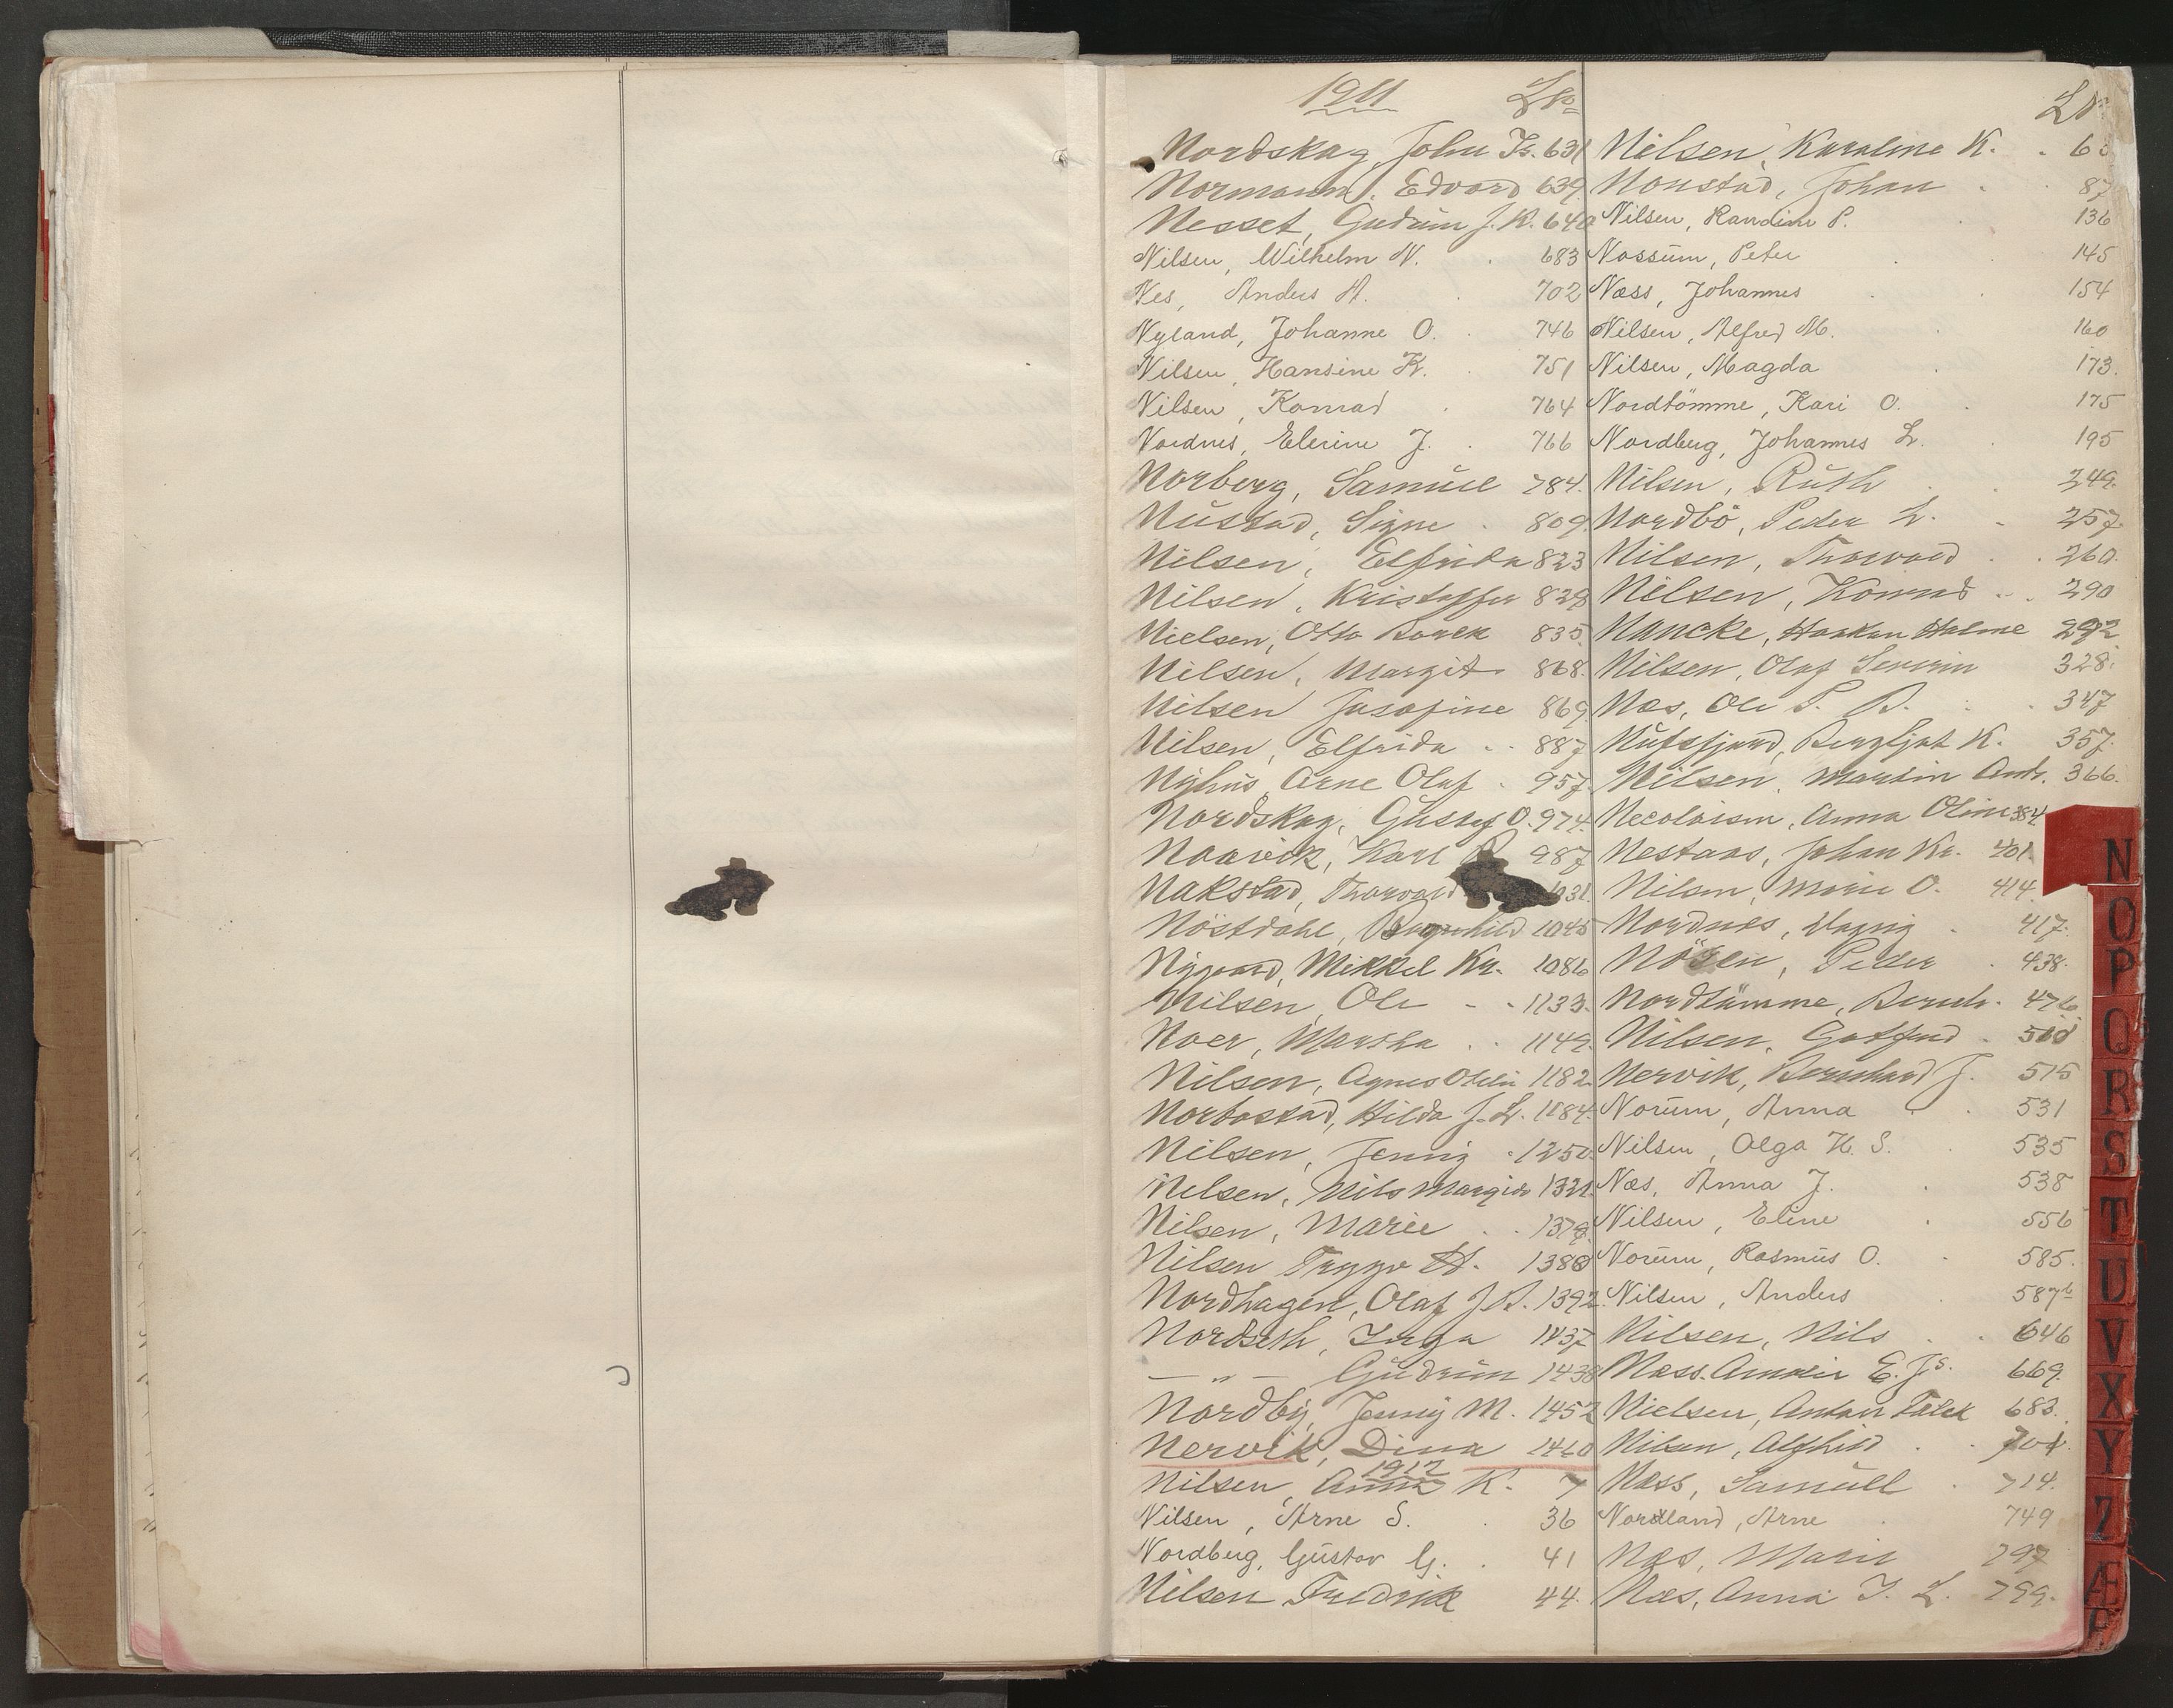 1911 LNo
Nordskag, John Is. 631
Normann, Edvard 639.
Nesset, Gudrun J. K. 640
Nilsen, Wilhelm N. 683
Nes, Anders A. 702
Nyland, Johanne O. 746
Nilsen, Hansine K. 751
Nilsen, Konrad 764
Nordnes, Elerine J. 766
Norberg, Samuel 784.
Nustad, Signe 809.
Nilsen, Elfrida 823
Nilsen, Kristoffer 829
Nielsen, Otto 835
Nilsen, Margit 868.
Nilsen Josefine 869.
Nilsen, Elfrida 887
Nyhus, Arne Olaf 957.
Nordskag, Gustaf O. 974.
Naavik, Karl 987
Nakstad, Thorvald 1031.
Nöstdahl, Borghild 1045
Nygaard, Mikkel Kr. 1086
Nilsen, Ole 1133.
Noer, Martha 1149.
Nilsen, Agnes Otelie 1182.
Norbostad, Hilda J. L. 1184.
Nilsen, Jenny 1250.
Nelsen, Nils Margido 1321.
Nilsen, Marie 1379.
Nilsen Trygve H. 1388
Nordhagen, Olaf J. B. 1392.
Nordseth, Inga 1437
— " — Gudrun 1438
Nordby, Jenny M. 1452
Nervik, Dina 1460
1912
Nilsen, Anna K. 7
Nilsen, Arne S. 36
Nordberg, Gustav G. 41
Nilsen Fredrik 44.
LNo
Nilsen, Karoline K. 63
Nonstad, Johan 87
Nilsen, Randine P. 136
Nossum, Peter 145
Næss, Johannes 154
Nilsen, Alfred M. 160
Nilsen, Magda 173.
Nordtömme, Kari O. 175
Nordberg, Johannes L. 195
Nilsen, Ruth 249.
Nordbö, Peder L. 257.
Nilsen, Thorvald 260.
Nilsen, Konrad 290
Nancke, Haakon Holme 292
Nilsen, Olaf Severin 328.
Næs, Ole P. B. 347
Nufsfjord, Bergljot K. 357.
Nilsen, Martin Andr. 366.
Necolaisen, Anna Oline 384
Nestaas, Johan Kr. 401.
Nilsen, Marie O. 414.
Nordnes, Magny 417.
Nösen, Peder 438.
Nordtömme, Bernh. 476.
Nilsen, Gotfred 510
Nervik, Bernhard J. 515
Norum, Anna 531
Nilsen, Olga H. S. 535
Næs, Anna J. 538
Nilsen, Eline 556
Norum, Rasmus O. 585.
Nilsen, Anders 587b
Nilsen, Nils 646
Næss. Amalie E. Js. 669.
Nielsen, Anton Falck 683.
Nilsen, Alfhild 701.
Næss, Samuel 714.
Nordland, Arne 749
Næs, Marie 797
Næs, Anna I. L. 799.
N
O
P
Q
R
S
T
U
V
X
Y
Z
Æ